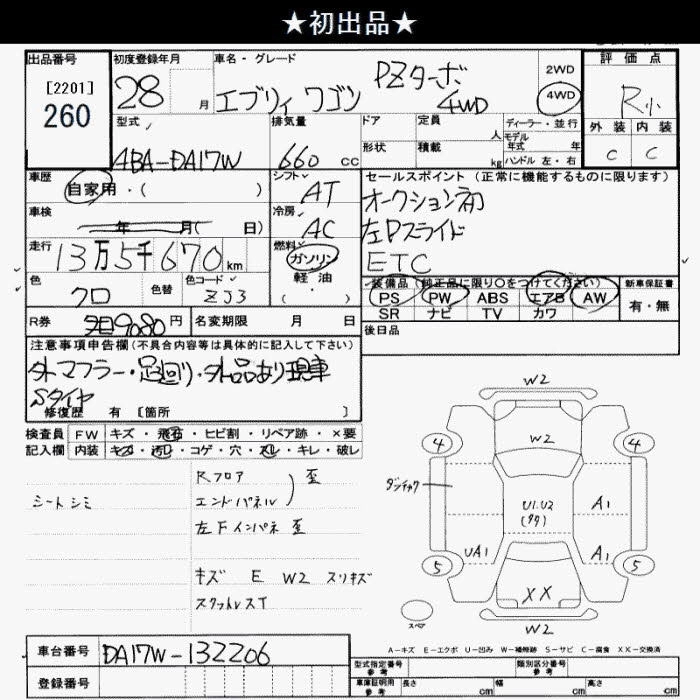 ★初出品★
出品番号 初度登録年月 車名・グレード 評価点
[2201]
260
28 月 エブリィ ワゴン PZターボ 4WD
2WD
4WD
R小
型式 排気量 ドア 定員 人 ディーラー・並行 外装 内装
ABA-DA17W 660 cc 形状 積載 kg モデル年式 年 C C
ハンドル 左・右
車歴 シフト セールスポイント (正常に機能するものに限ります)
自家用・( ) AT オークション初
車検 冷房 左Pスライド
年 月( 日) AC ETC
走行 燃料
13万5千670km ガソリン
軽油
( )
色 色替 色コード 装備品 (純正品に限り○をつけてください) 新車保証書
クロ ZJ3 PS PW ABS エアB AW 有・無
SR ナビ TV カワ
R券 9080円 名変期限 月 日 後日品
注意事項申告欄(不具合内容等は具体的に記入して下さい)
外マフラー・足回り・外品あり現車
Sタイヤ
修復歴 有 [箇所 ]
検査員 FW キズ・飛石・ヒビ割・リペア跡・×要
記入欄 内装 キズ・汚れ・コゲ・穴・スレ・キレ・破レ
Rフロア 歪
シートシミ エンドパネル
左Fインパネ 歪
キズ E W2 スリキズ
W2
W2
4 4
U1.U2
A1
UA1 A1
5 5
XX
スペア
W2
A-キズ E-エクボ U-凹み W-補修跡 S-サビ C-腐食 XX-交換済
車台番号 DA17W-132206
登録番号
型式指定番号 参考 類別区分番号 参考
車庫証明用 参考 長さ cm 幅 cm 高さ cm